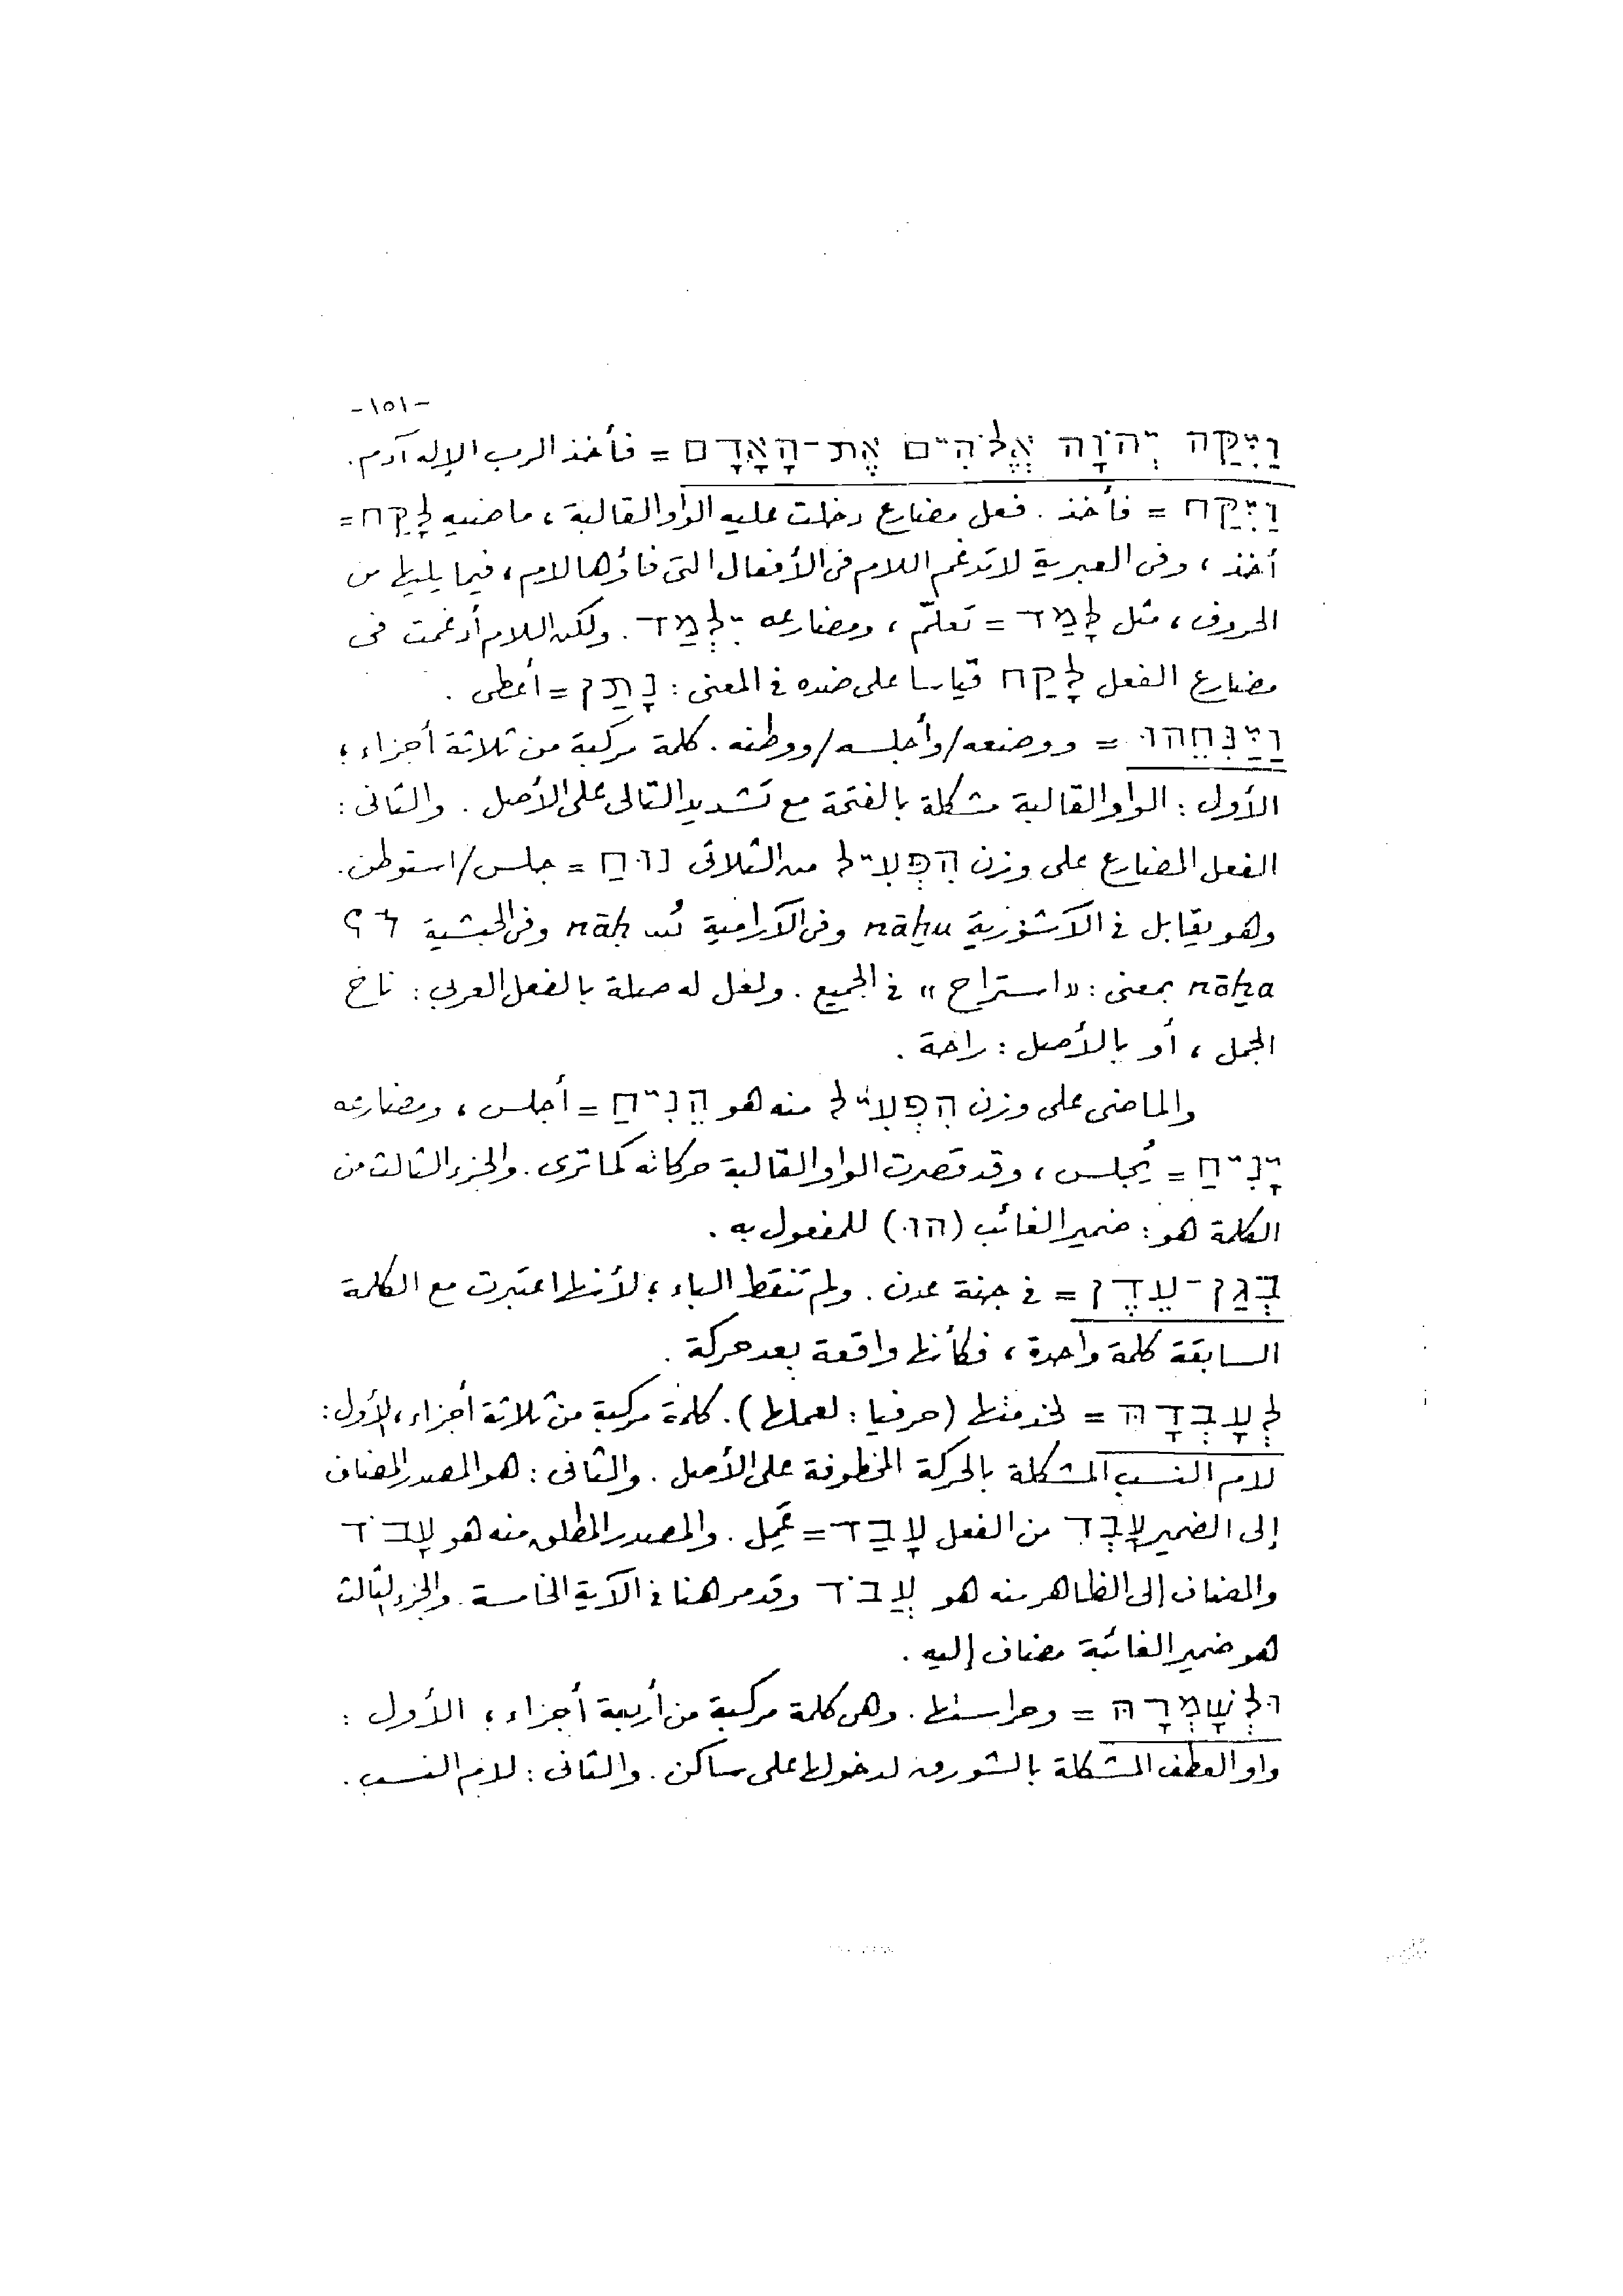 -١٥١-
וַיִּקַּה יְהוָֹה אֱלֹהִים אֶת-הָאָדָם = فأخذ الرب الإله آدم.
וַיִּקַּח = فأخذ . فعل مضارع دخلت عليه الواو القالبة ، ماضيه לָקַח =
أخذ ، وفى العبرية لا تدغم اللام فى الأفعال التى فاؤها لام ، فيما يليها من
الحروف ، مثل לָמַד = تعلّم ، ومضارعه יִלְמַד . ولكن اللام أدغمت فى
مضارع الفعل לָקַח قياسا على ضده فى المعنى : נָתַן = أعطى .
וַיַּנִּחֵהוּ = ووضعه/وأجلسه/ووطنه . كلمة مركبة من ثلاثة أجزاء ؛
الأول : الواو القالبة مشكلة بالفتحة مع تشديد التالى على الأصل . والثانى :
الفعل المضارع على وزن הִפְעִיל من الثلاثى נוּחַ = جلس/استوطن.
وهو يقابل فى الآشورية nāḫu وفى الآرامية nāḥ وفى الحبشية
nōḫa بمعنى : «استراح» فى الجميع . ولعل له صلة بالفعل العربى : ناخ
الجمل ، أو بالأصل : راحة .
والماضى على وزن הִפְעִיל منه هو הֵנִיחַ = أجلس ، ومضارعه
יָנִיחַ = يُجلس ، وقد قصرت الواو القالبة حركاته كما ترى . والجزء الثالث من
الكلمة هو : ضمير الغائب (הוּ) للمفعول به .
בְּגַן-עֵדֶן = فى جنة عدن . ولم تنقط الباء ؛ لأنها اعتبرت مع الكلمة
السابقة كلمة واحدة ، فكأنها واقعة بعد حركة .
לְעָבְדָהּ = لخدمتها (حرفيا : لعملها) . كلمة مركبة من ثلاثة أجزاء ، الأول :
لام النسب المشكلة بالحركة المخطوفة على الأصل . والثانى : هو المصدر المضاف
إلى الضمير עָבְד من الفعل עָבַד = عَمِل . والمصدر المطلق منه هو עָבוֹד
والمضاف إلى الظاهر منه هو עֲבֹד وقد مر هنا فى الآية الخامسة . والجزء الثالث
هو ضمير الغائبة مضاف إليه .
וּלְשָׁמְרָהּ = وحراستها . وهى كلمة مركبة من أربعة أجزاء ؛ الأول :
واو العطف المشكلة بالشورق لدخولها على ساكن . والثانى : لام النسب .